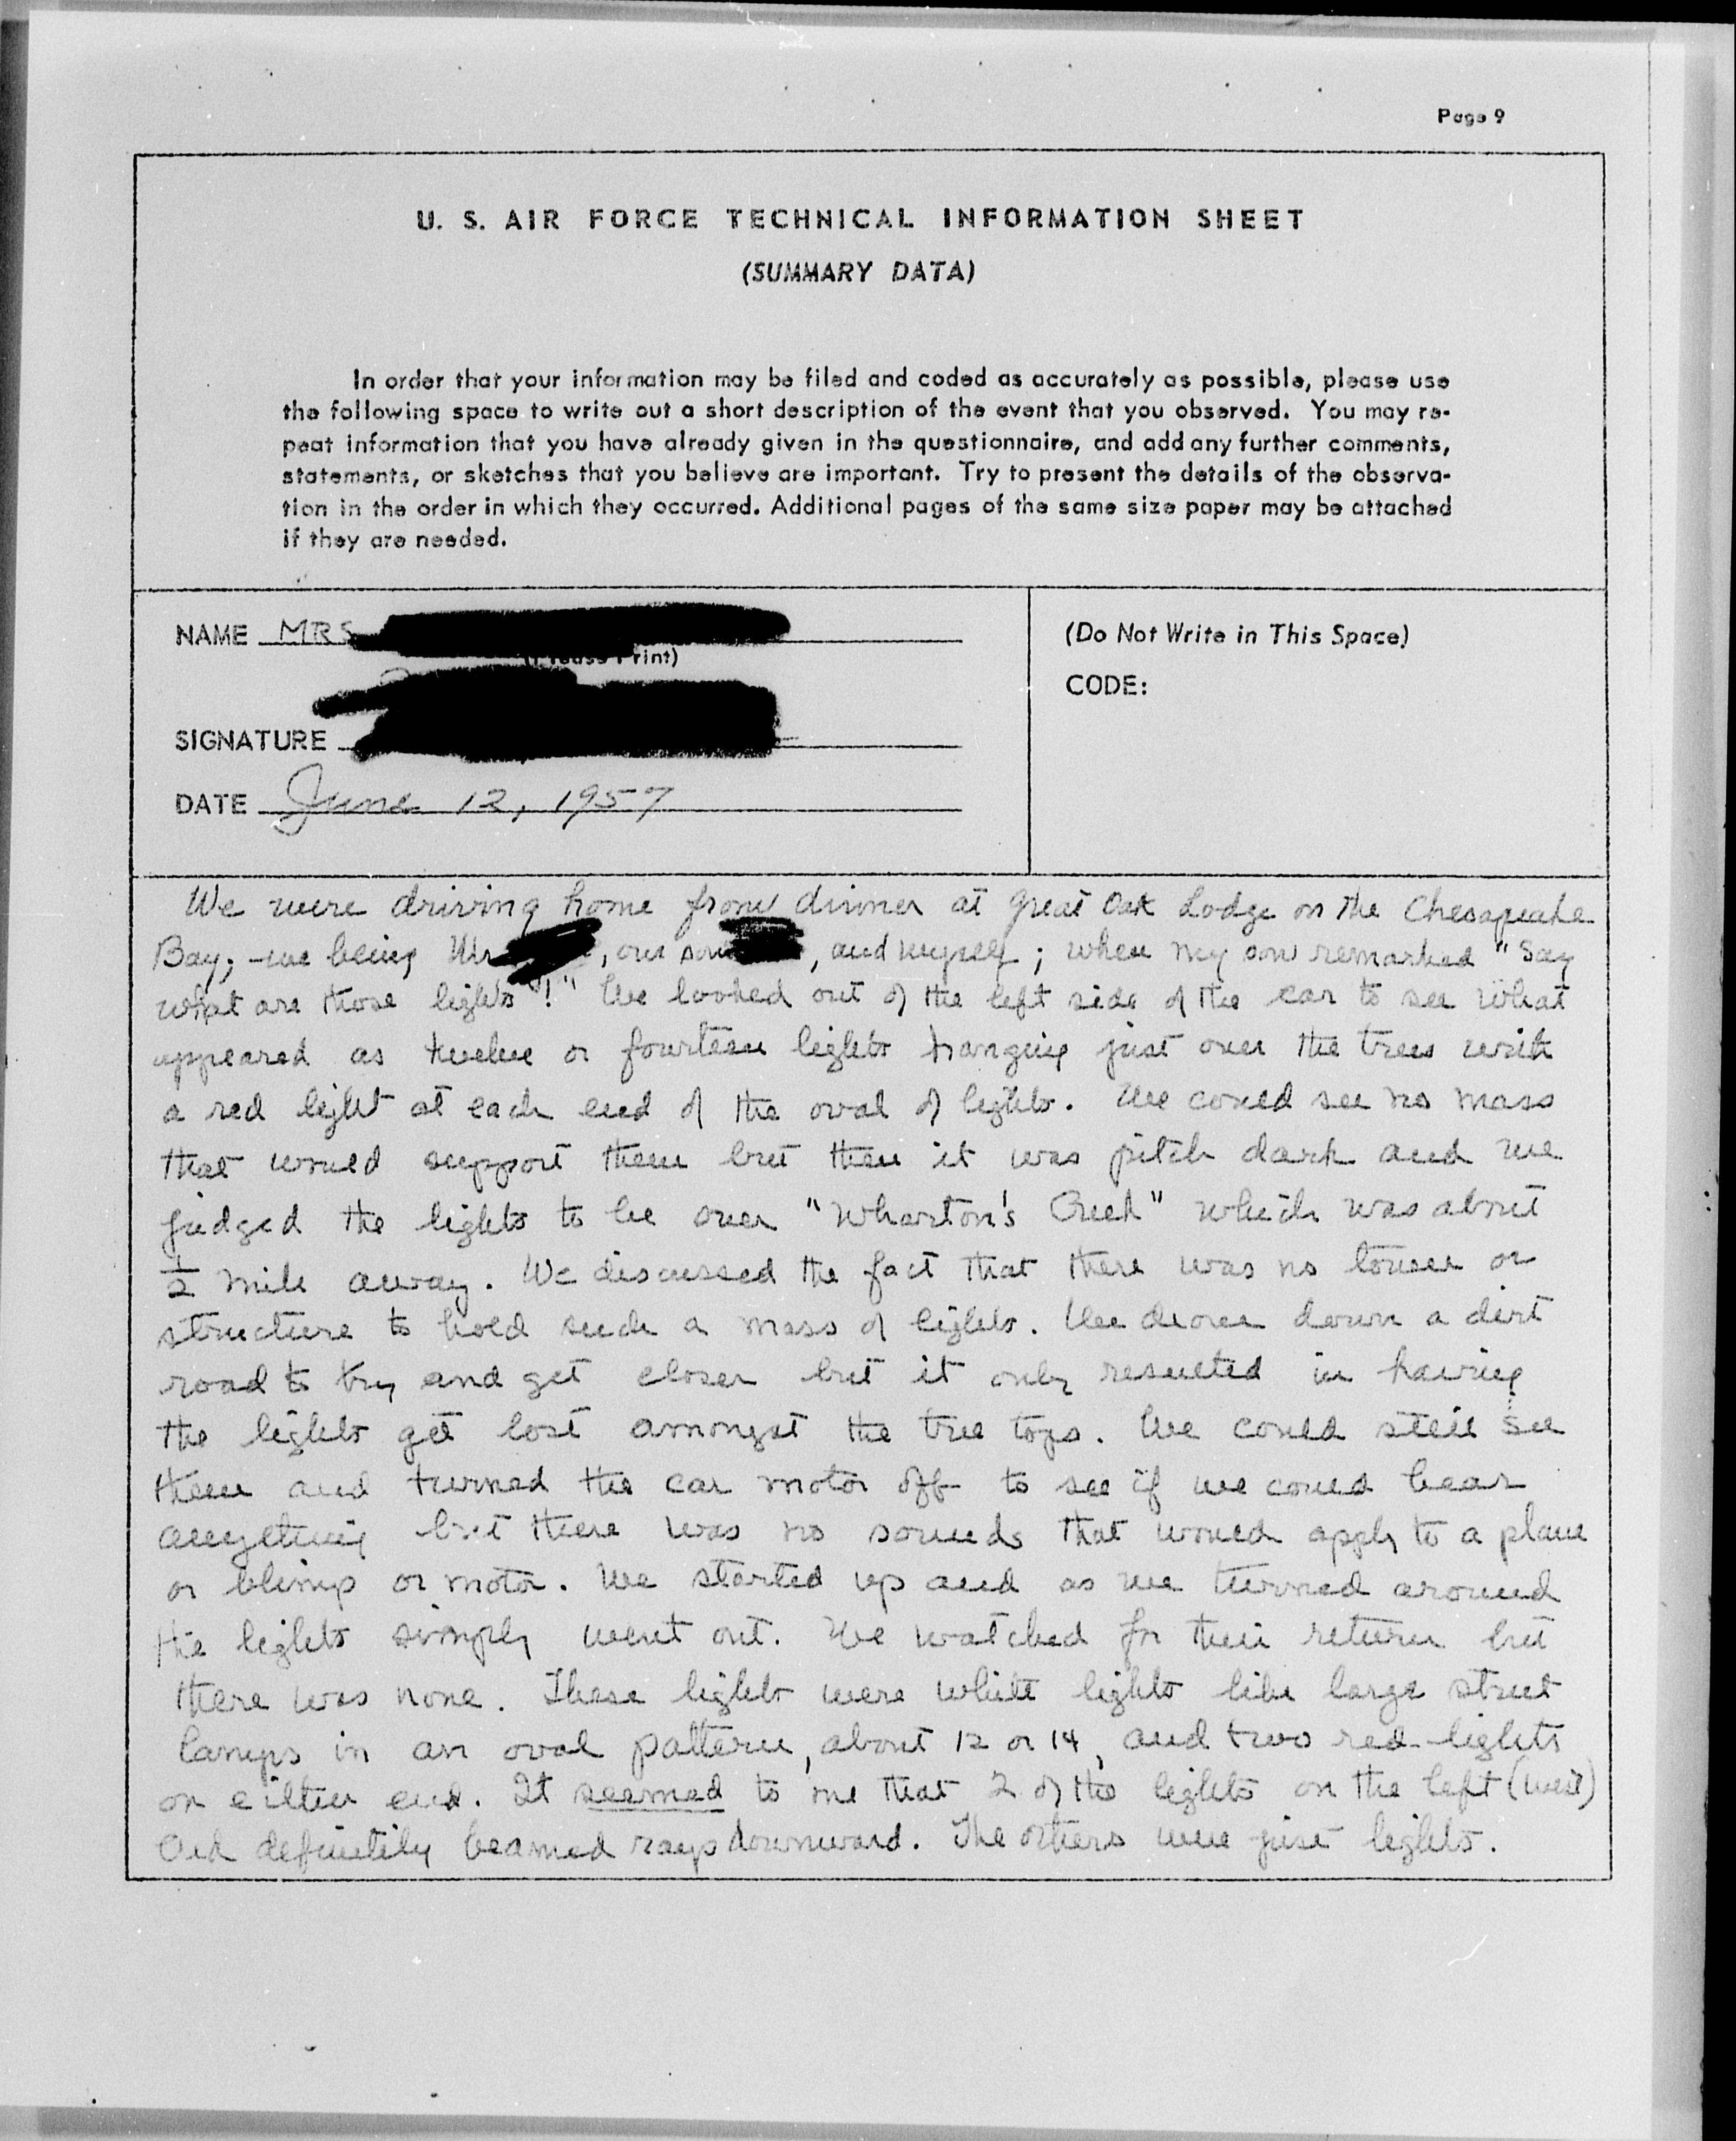 Page 9
U. S. AIR FORCE TECHNICAL INFORMATION SHEET
(SUMMARY DATA)
In order that your information may be filed and coded as accurately as possible, please use
the following space to write out a short description of the event that you observed. You may re-
peat information that you have already given in the questionnaire, and add any further comments,
statements, or sketches that you believe are important. Try to present the details of the observa-
tion in the order in which they occurred. Additional pages of the same size paper may be attached
if they are needed.
NAME MRS
(Please Print)
SIGNATURE
DATE June 12, 1957
(Do Not Write in This Space)
CODE:
We were driving home from dinner at Great Oak Lodge on the Chesapeake
Bay; - we being Mr , our son , and myself; when my son remarked "Say
what are those lights"!" We looked out of the left side of the car to see what
appeared as twelve or fourteen lights hanging just over the trees with
a red light at each end of the oval of lights. We could see no mass
that would support them but then it was pitch dark and we
judged the lights to be over "Wharton's Creek" which was about
1/2 mile away. We discussed the fact that there was no tower or
structure to hold such a mass of lights. We drove down a dirt
road to try and get closer but it only resulted in having
the lights get lost amongst the tree tops. We could still see
them and turned the car motor off to see if we could hear
anything but there was no sounds that would apply to a plane
or blimp or motor. We started up and as we turned around
the lights simply went out. We watched for their return but
there was none. These lights were white lights like large street
lamps in an oval pattern, about 12 or 14, and two red lights
on either end. It seemed to me that 2 of the lights on the left (west)
end definitely beamed rays downward. The others were just lights.